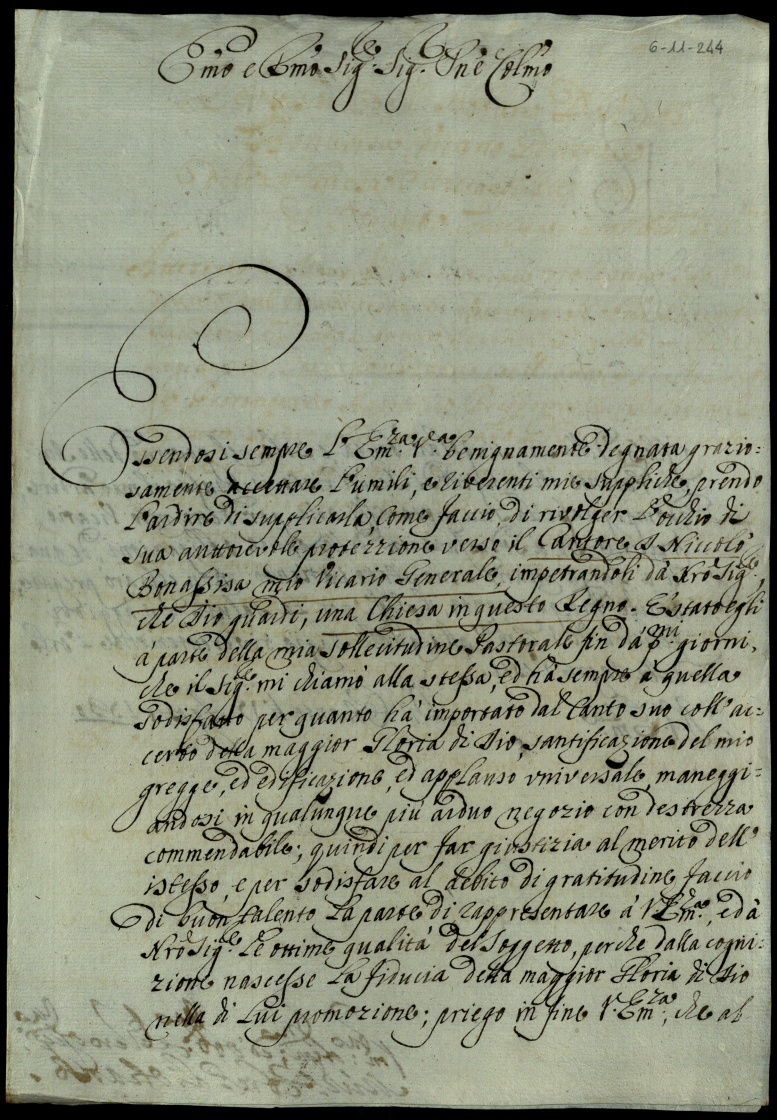 6-11-244
Emo e Rmo Sig.r Sig.r Pne Colmo
Essendosi sempre l'Em.za V.ra benignamente degnata grazio=
samente accettare l'umili, e riverenti mie suppliche, prendo
l'ardire di supplicarla, come faccio, di rivolger l'occhio di
sua auttorevole protezzione verso il Cantore D. Niccolò
Bonassisa mio Vicario Generale, impetrandoli da Nrõ Sig.re,
che Dio guardi, una Chiesa in questo Regno. È stato egli
à parte della mia sollecitudine Pastorale fin da p.mi giorni,
che il Sig.re mi chiamò alla stessa, ed hà sempre à quella
sodisfatto per quanto hà importato dal Canto suo coll'ac=
certo della maggior Gloria di Dio, santificazione del mio
gregge, ed edificazione, ed applauso universale, maneggi=
andosi in qualunque più arduo negozio con destrezza
commendabile; quindi per far giustizia al merito dell'
istesso, e per sodisfare al debito di gratitudine faccio
di buon talento la parte di rappresentare à V.Em.za, ed à
Nrõ Sig.re le ottime qualità del Soggetto, perche dalla cogni=
zione nascesse la fiducia della maggior Gloria di Dio
nella di Lui promozione; priego in fine V.Em.za, che al